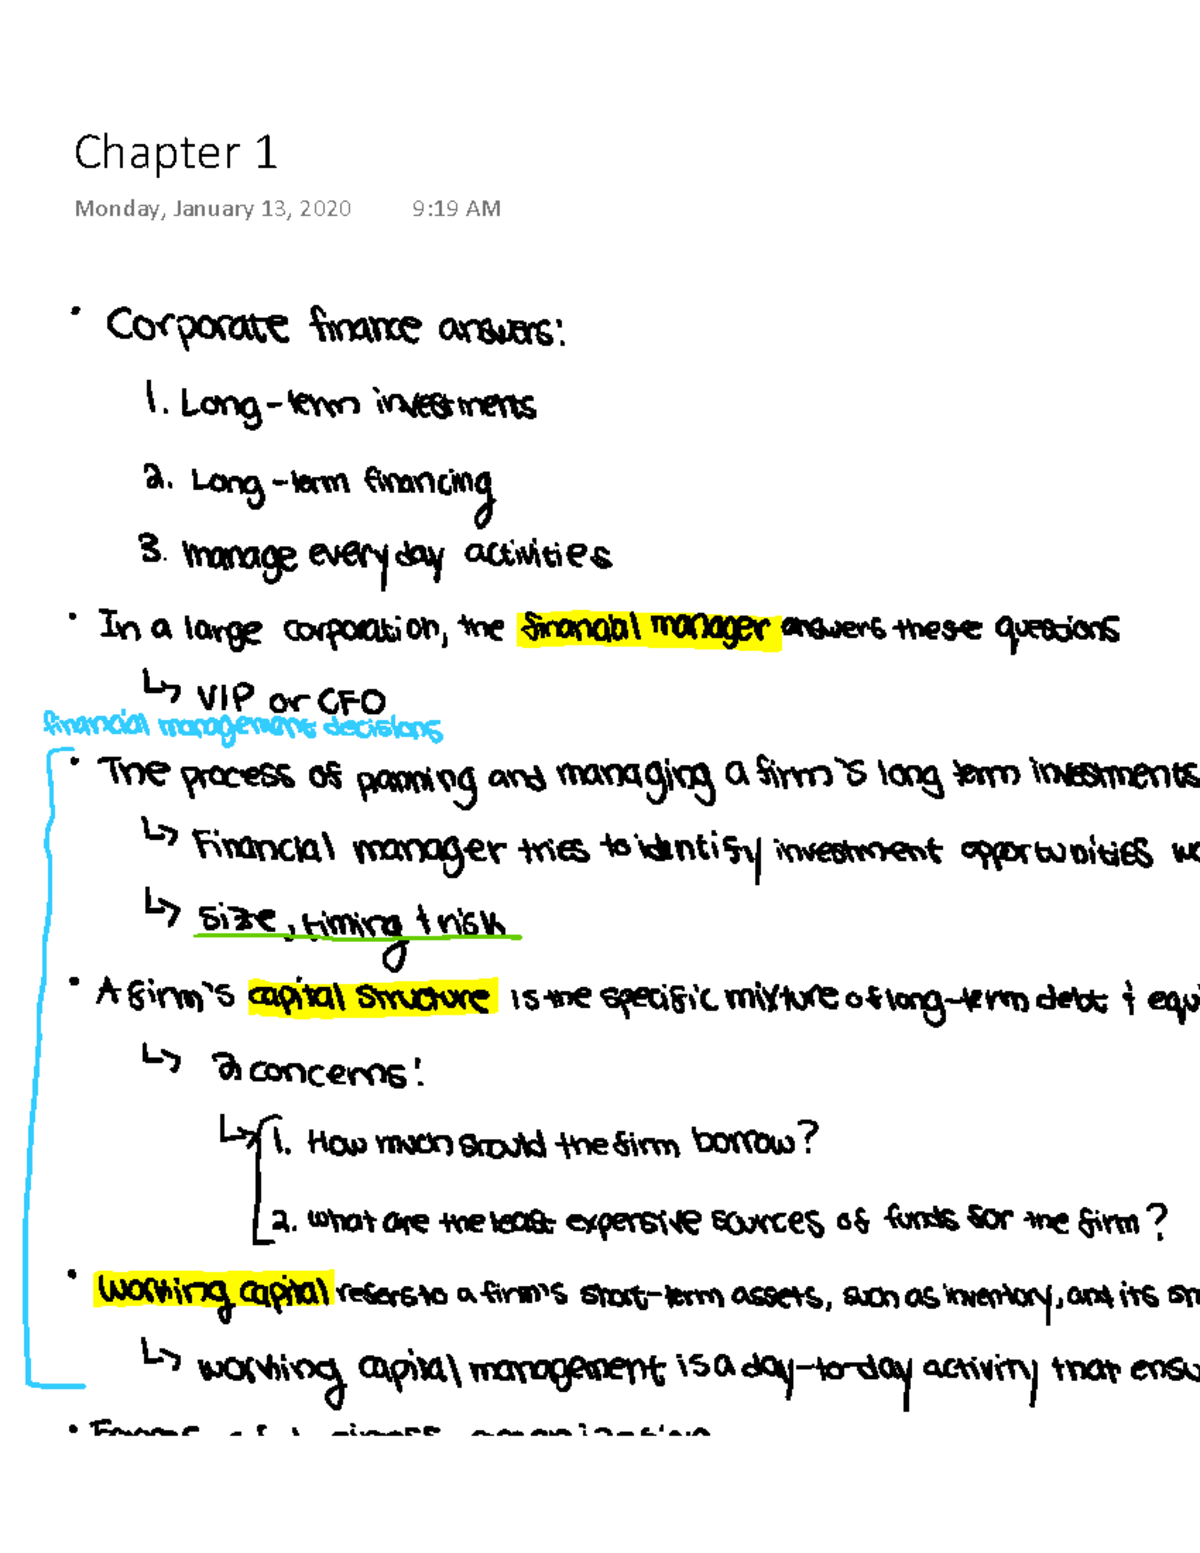 Chapter 1
Monday, January 13, 2020 9:19 AM
• Corporate finance answers:
1. Long-term investments
2. Long-term financing
3. manage everyday activities
• In a large corporation, the financial manager answers these questions
↳ VIP or CFO
financial management decisions
• The process of panning and managing a firm's long term investments
↳ Financial manager tries to identify investment opportunities
↳ size, timing + risk
• A firm's capital structure is the specific mixture of long-term debt +
↳ 2 concerns:
↳ 1. How much should the firm borrow?
2. what are the least expensive sources of funds for the firm?
• working capital refers to a firm's short-term assets, such as inventory, and its
↳ working capital management is a day-to-day activity that